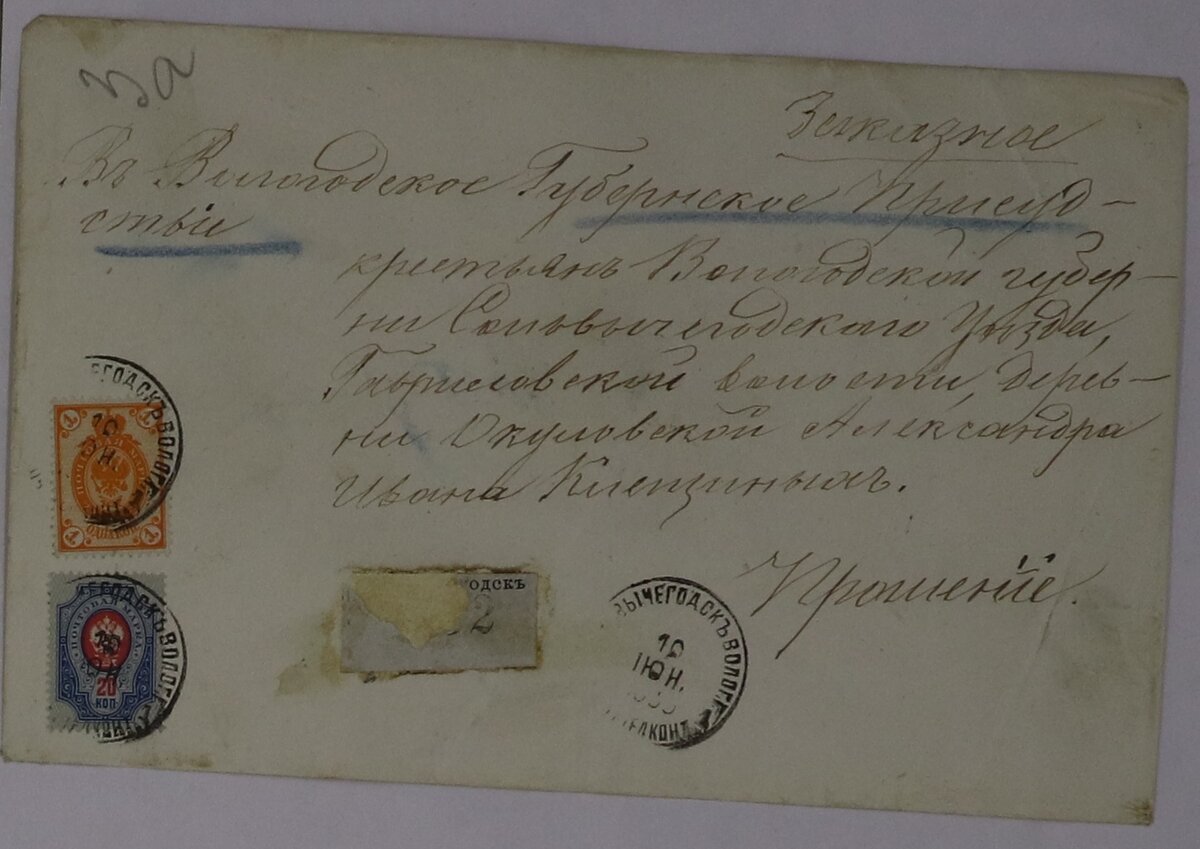 За
Заказное
Въ Вологодское Губернское Присуд-
ствіи
крестьянъ Вологодской губер-
ни Сольвычегодского Уѣзда,
Гавриловской волости, дерев-
ни Окуловской Александра
Ивана Клепиныхъ.
Прошеніе.
ЕГОДСКЪ ВОЛОГ. Г.
10
ЮН.
1
1
ПОЧТОВАЯ МАРКА
ОДНА КОП.
1
1
ЕГОДСКЪ ВОЛОГ. Г.
10
ПОЧТОВАЯ МАРКА
20
КОП
ОДСКЪ
2
ВЫЧЕГОДСКЪ ВОЛОГ. Г.
10
ІЮН.
ТЕЛ. КОНТ.